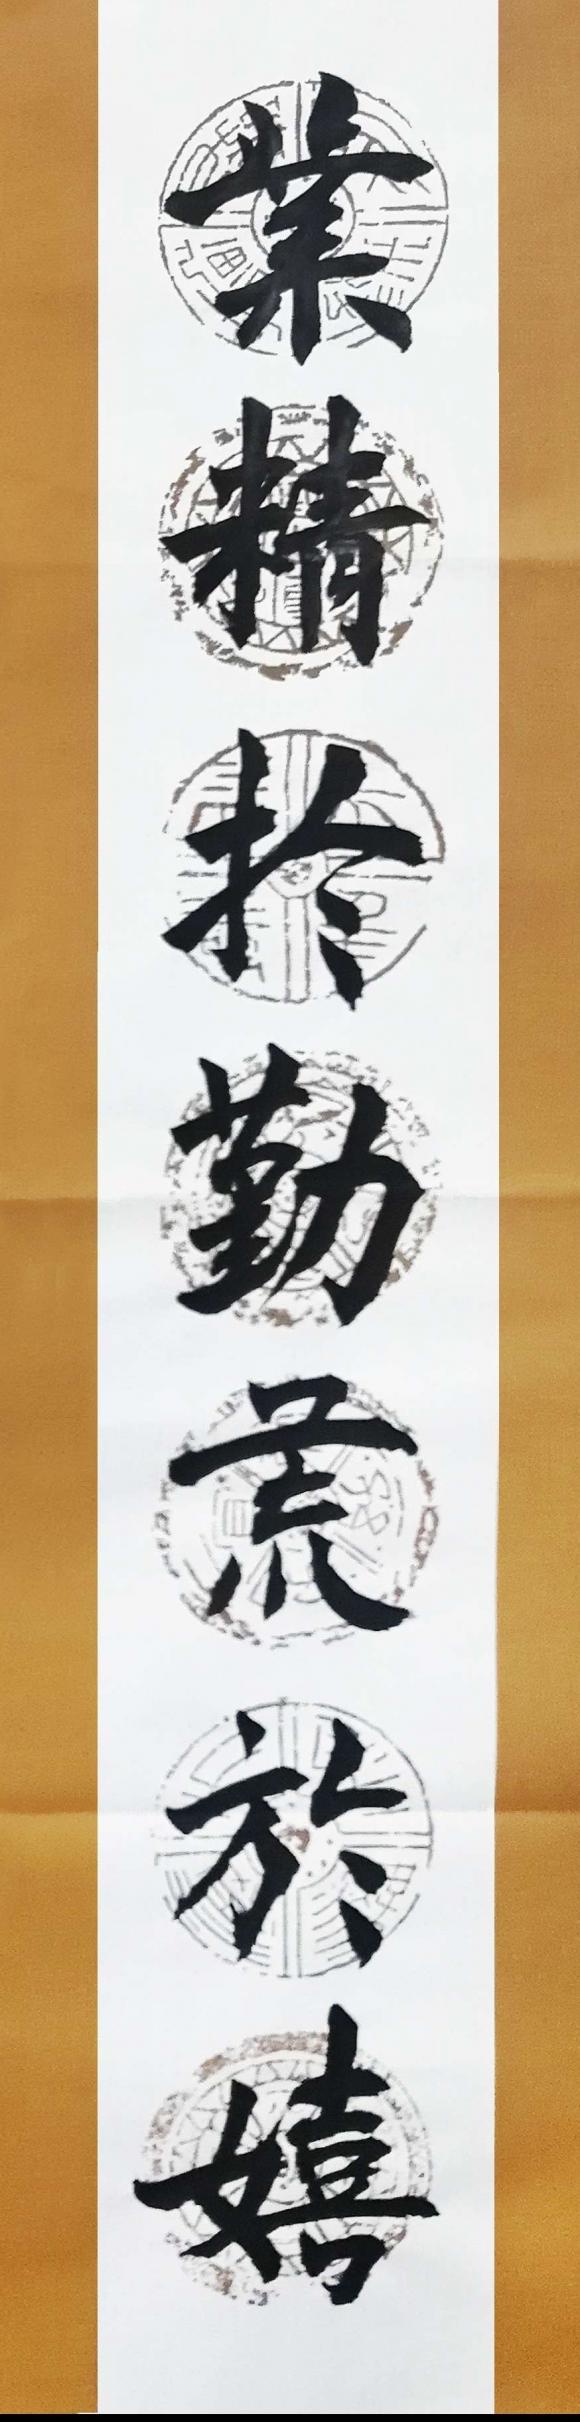 業精扵勤荒於嬉